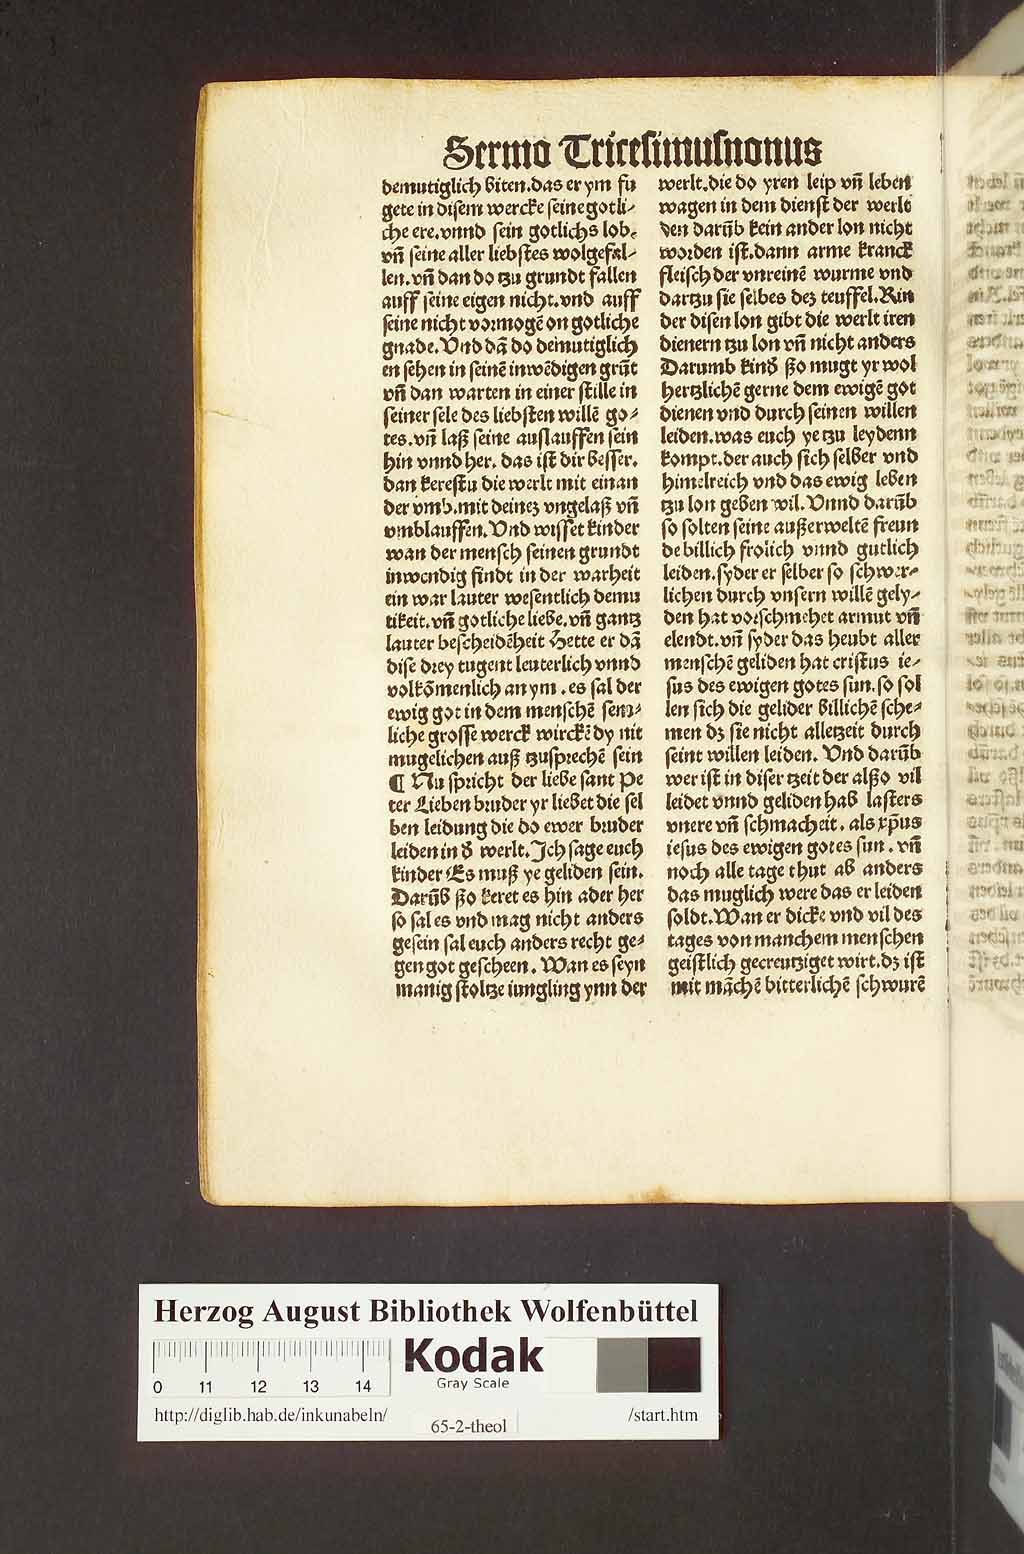 Sermo Tricesimusnonus
demutiglich biten.das er ym fu
gete in disem wercke seine gotli-
che ere.vnnd sein gotlichs lob.
vn̄ seine aller liebstes wolgefal-
len.vn̄ dan do tzu grundt fallen
auff seine eigen nicht.vnd auff
seine nicht vormogē on gotliche
gnade.Vnd dā do demutiglich
en sehen in seinē inwēdigen grūt
vn̄ dan warten in einer stille in
seiner sele des liebsten willē go-
tes.vn̄ laß seine auslauffen sein
hin vnnd her. das ist dir besser.
dan kerestu die werlt mit einan
der vmb.mit deinez vngelaß vn̄
vmblauffen.Vnd wisset kinder
wan der mensch seinen grundt
inwendig findt in der warheit
ein war lauter wesentlich demu
tikeit.vn̄ gotliche liebe.vn̄ gantz
lauter bescheidēheit Hette er dā
dise drey tugent leuterlich vnnd
volkōmenlich an ym.es sal der
ewig got in dem menschē sem-
liche grosse werck wirckē dy nit
mugelichen auß tzusprechē sein
¶ Nu spricht der liebe sant Pe
ter Lieben bruder yr liebet die sel
ben leidung die do ewer bruder
leiden in d̄ werlt.Ich sage euch
kinder Es muß ye geliden sein.
Darūb ßo keret es hin ader her
so sal es vnd mag nicht anders
gesein sal euch anders recht ge-
gen got gescheen. Wan es seyn
manig stoltze iungling ynn der
werlt.die do yren leip vn̄ leben
wagen in dem dienst der werlt
den darūb kein ander lon nicht
worden ist.dann arme kranck
fleisch der vnreinē wurme vnd
dartzu sie selbes dez teuffel.Kin
der disen lon gibt die werlt iren
dienern tzu lon vn̄ nicht anders
Darumb kind̄ ßo mugt yr wol
hertzlichē gerne dem ewigē got
dienen vnd durch seinen willen
leiden.was euch ye tzu leydenn
kompt.der auch sich selber vnd
himelreich vnd das ewig leben
tzu lon geben wil.Vnnd darūb
so solten seine außerweltē freun
de billich frolich vnnd gutlich
leiden.syder er selber so schwer-
lichen durch vnsern willē gely-
den hat vorschmehet armut vn̄
elendt.vn̄ syder das heubt aller
menschē geliden hat cristus ie-
sus des ewigen gotes sun.so sol
len sich die gelider billichē sche-
men dz sie nicht alletzeit durch
seint willen leiden. Vnd darūb
wer ist in diser tzeit der alßo vil
leidet vnnd geliden hab lasters
vnere vn̄ schmacheit. als xp̄us
iesus des ewigen gotes sun. vn̄
noch alle tage thut ab anders
das muglich were das er leiden
soldt.Wan er dicke vnd vil des
tages von manchem menschen
geistlich gecreutziget wirt.dz ist
mit māchē bitterlichē schwurē
Herzog August Bibliothek Wolfenbüttel
Kodak
Gray Scale
0 11 12 13 14
http://diglib.hab.de/inkunabeln/ 65-2-theol /start.htm